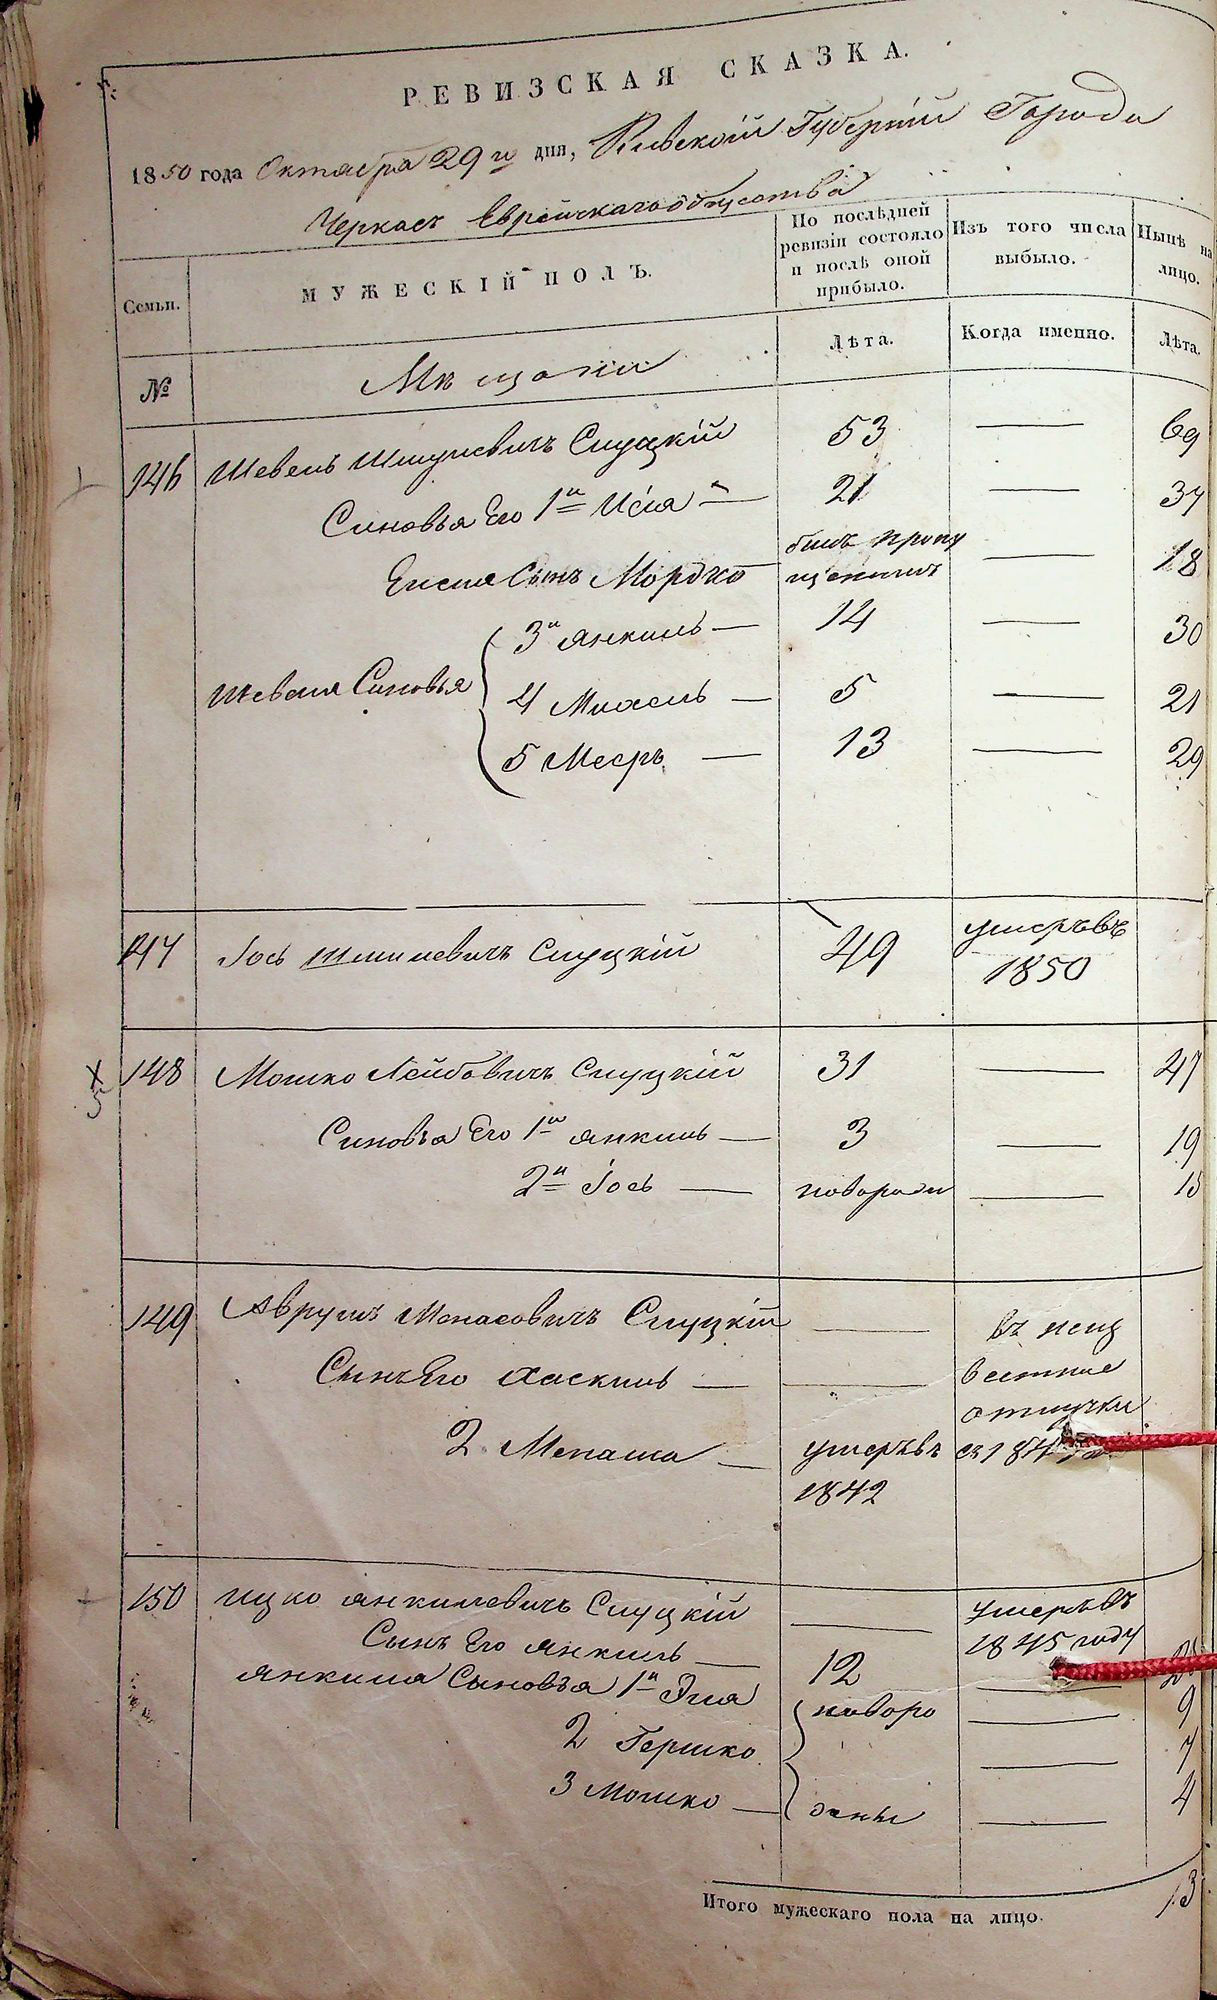 РЕВИЗСКАЯ СКАЗКА.
1850 года Октября 29 го дня, Киевской Губерніи Города
Черкасъ Еврейскаго общества
Семьи.
МУЖЕСКІЙ ПОЛЪ.
По послѣдней ревизіи состояло и послѣ оной прибыло.
Изъ того числа выбыло.
Нынѣ на лицо.
№
Мѣщане
Лѣта.
Когда именно.
Лѣта.
146 Шевель Шмулевичъ Слуцкій 53 — 69
Синовья Его 1й Исія — 21 — 37
Сынъ Мордко былъ пропущенымъ — 18
Шевеля Синовья
3й Янкиль — 14 — 30
4 Михель — 5 — 21
5 Мееръ — 13 — 29
147 Іось Шмилевичъ Слуцкій 49 умеръ въ 1850
148 Мошко Лейбовичъ Слуцкій 31 — 47
Синовья Его 1й Янкиль — 3 — 19
2й Іось — новорож — 15
149 Аврумъ Менасовичъ Слуцкій — въ неиз
Сынъ Его Хаскиль — — вестние
отлучки
2 Менаша — умеръ въ 1842
150 Ицко Янкилевичъ Слуцкій — умеръ въ 1845 году
Сынъ Его Янкиль — 12 —
Янкиля Сыновья 1й Элія новоро — 9
2 Гершко — 7
3 Мошко — дены — 4
Итого мужескаго пола на лицо. 13